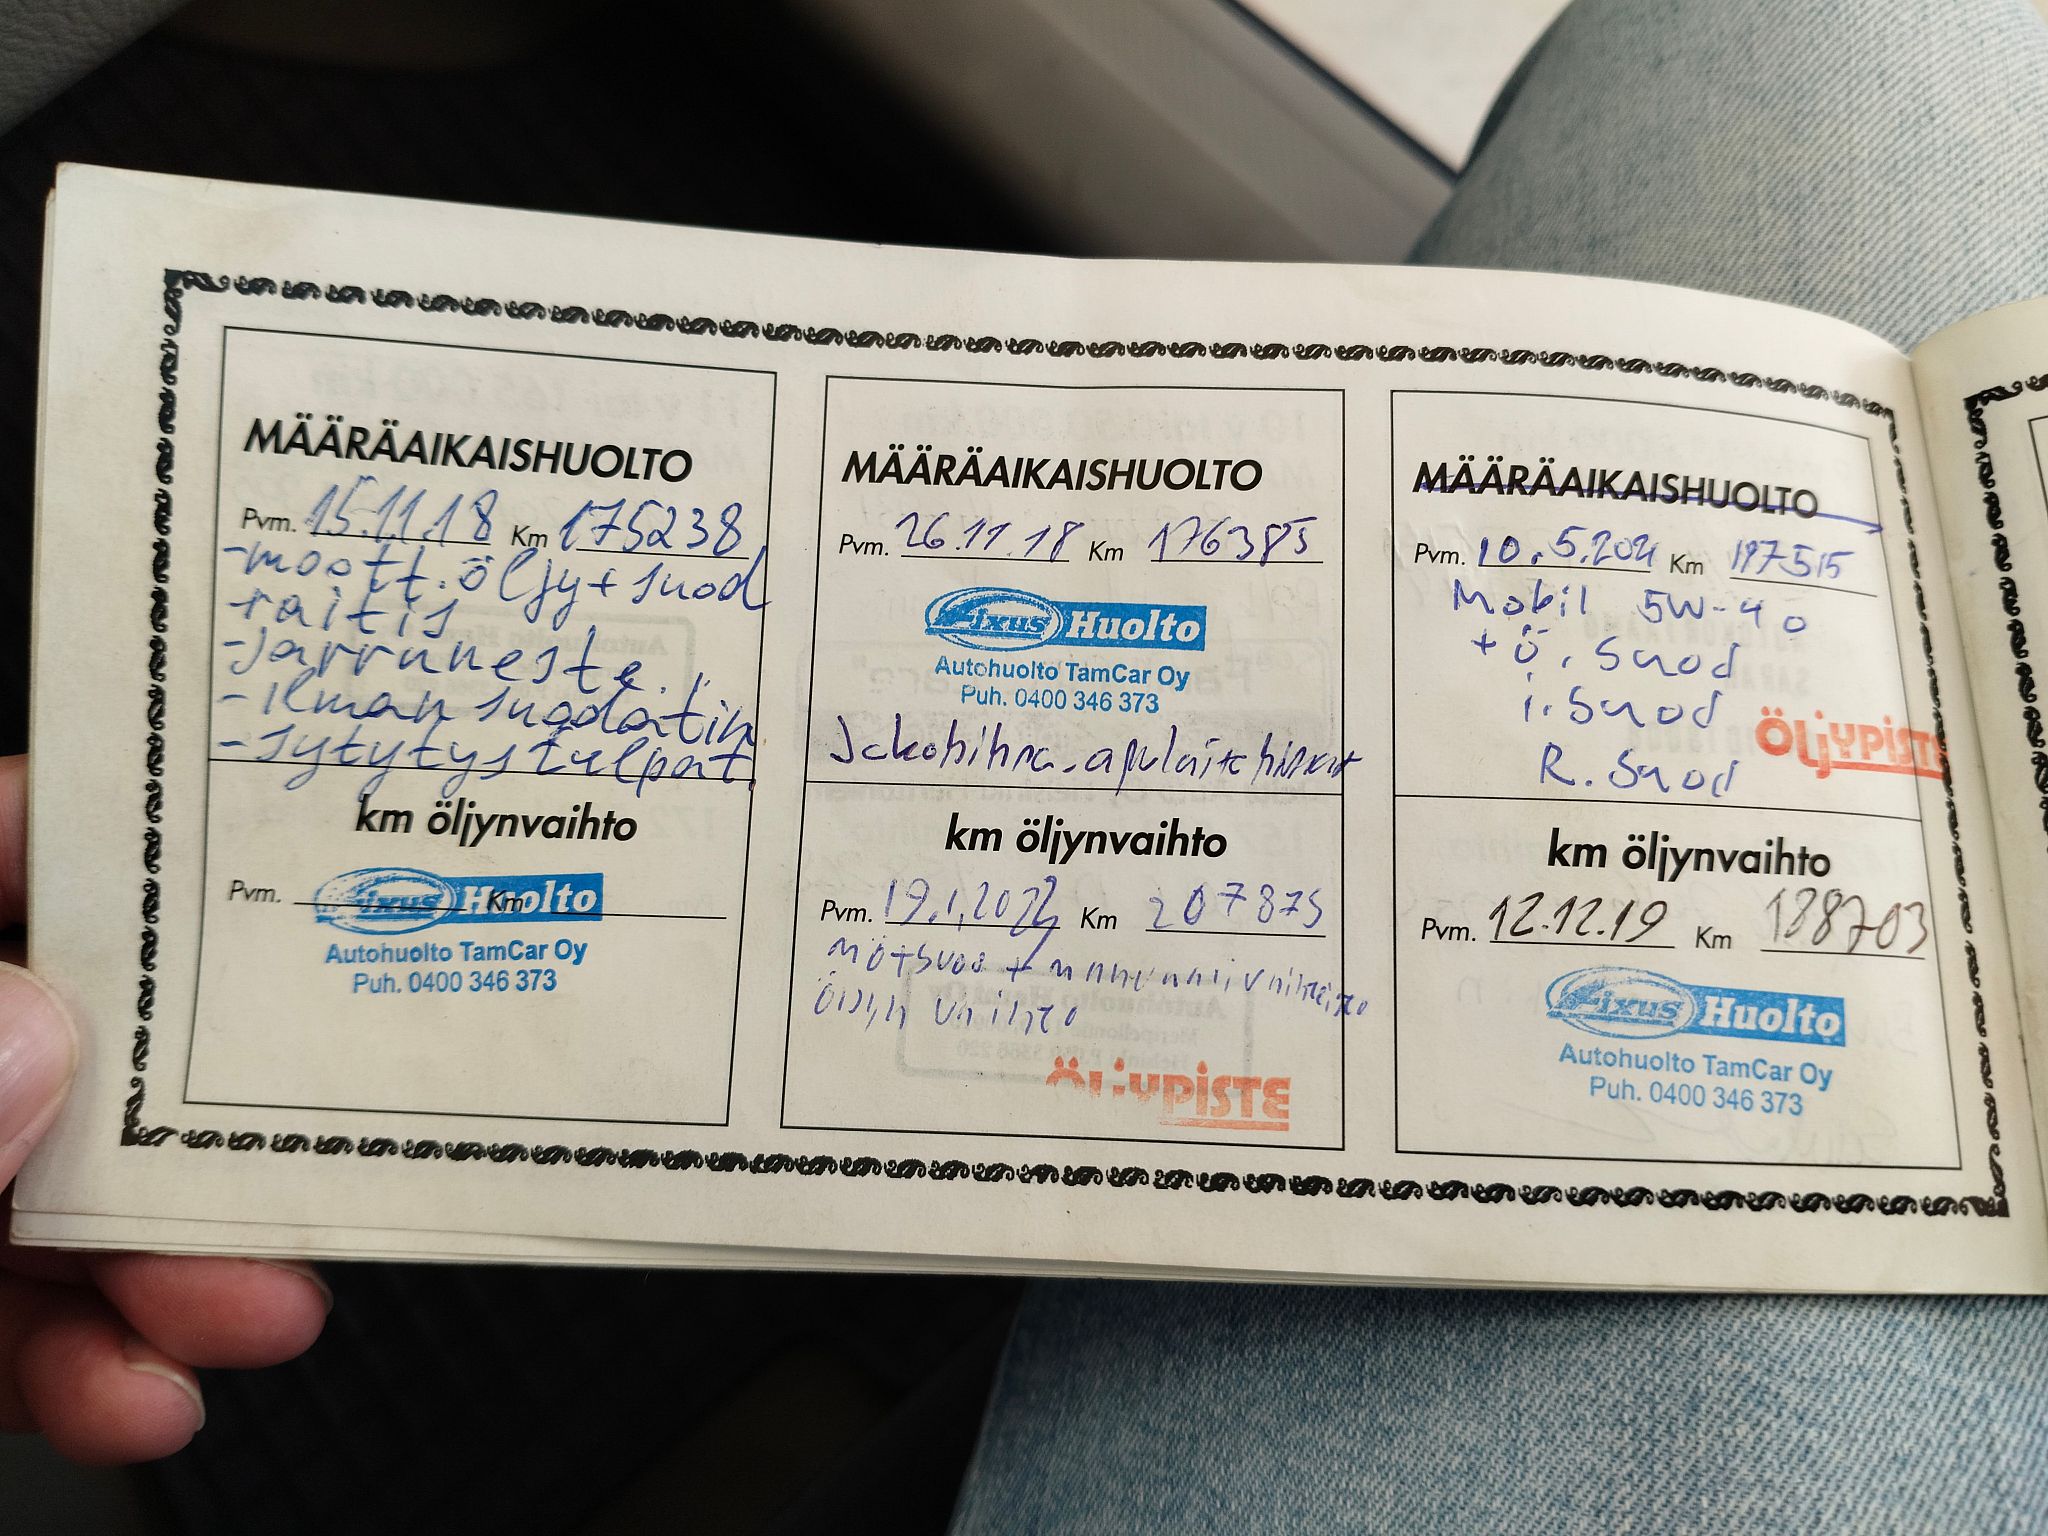 MÄÄRÄAIKAISHUOLTO
Pvm. 15.11.18 Km 175238
-moott.öljy+suod
raitis
-Jarruneste.
-ilman suodatin
-sytytystulpat.
km öljynvaihto
Pvm. Km
Fixus Huolto
Autohuolto TamCar Oy
Puh. 0400 346 373
MÄÄRÄAIKAISHUOLTO
Pvm. 26.11.18 Km 176385
Fixus Huolto
Autohuolto TamCar Oy
Puh. 0400 346 373
Jakohihna, apulaitehihnat
km öljynvaihto
Pvm. 19.1.2022 Km 207875
öljyn vaihto
ÖLJYPISTE
MÄÄRÄAIKAISHUOLTO
Pvm. 10.5.2021 Km 197515
Mobil 5W-40
+ Ö. Suod
i. Suod
R. Suod
ÖLJYPISTE
km öljynvaihto
Pvm. 12.12.19 Km 188703
Fixus Huolto
Autohuolto TamCar Oy
Puh. 0400 346 373